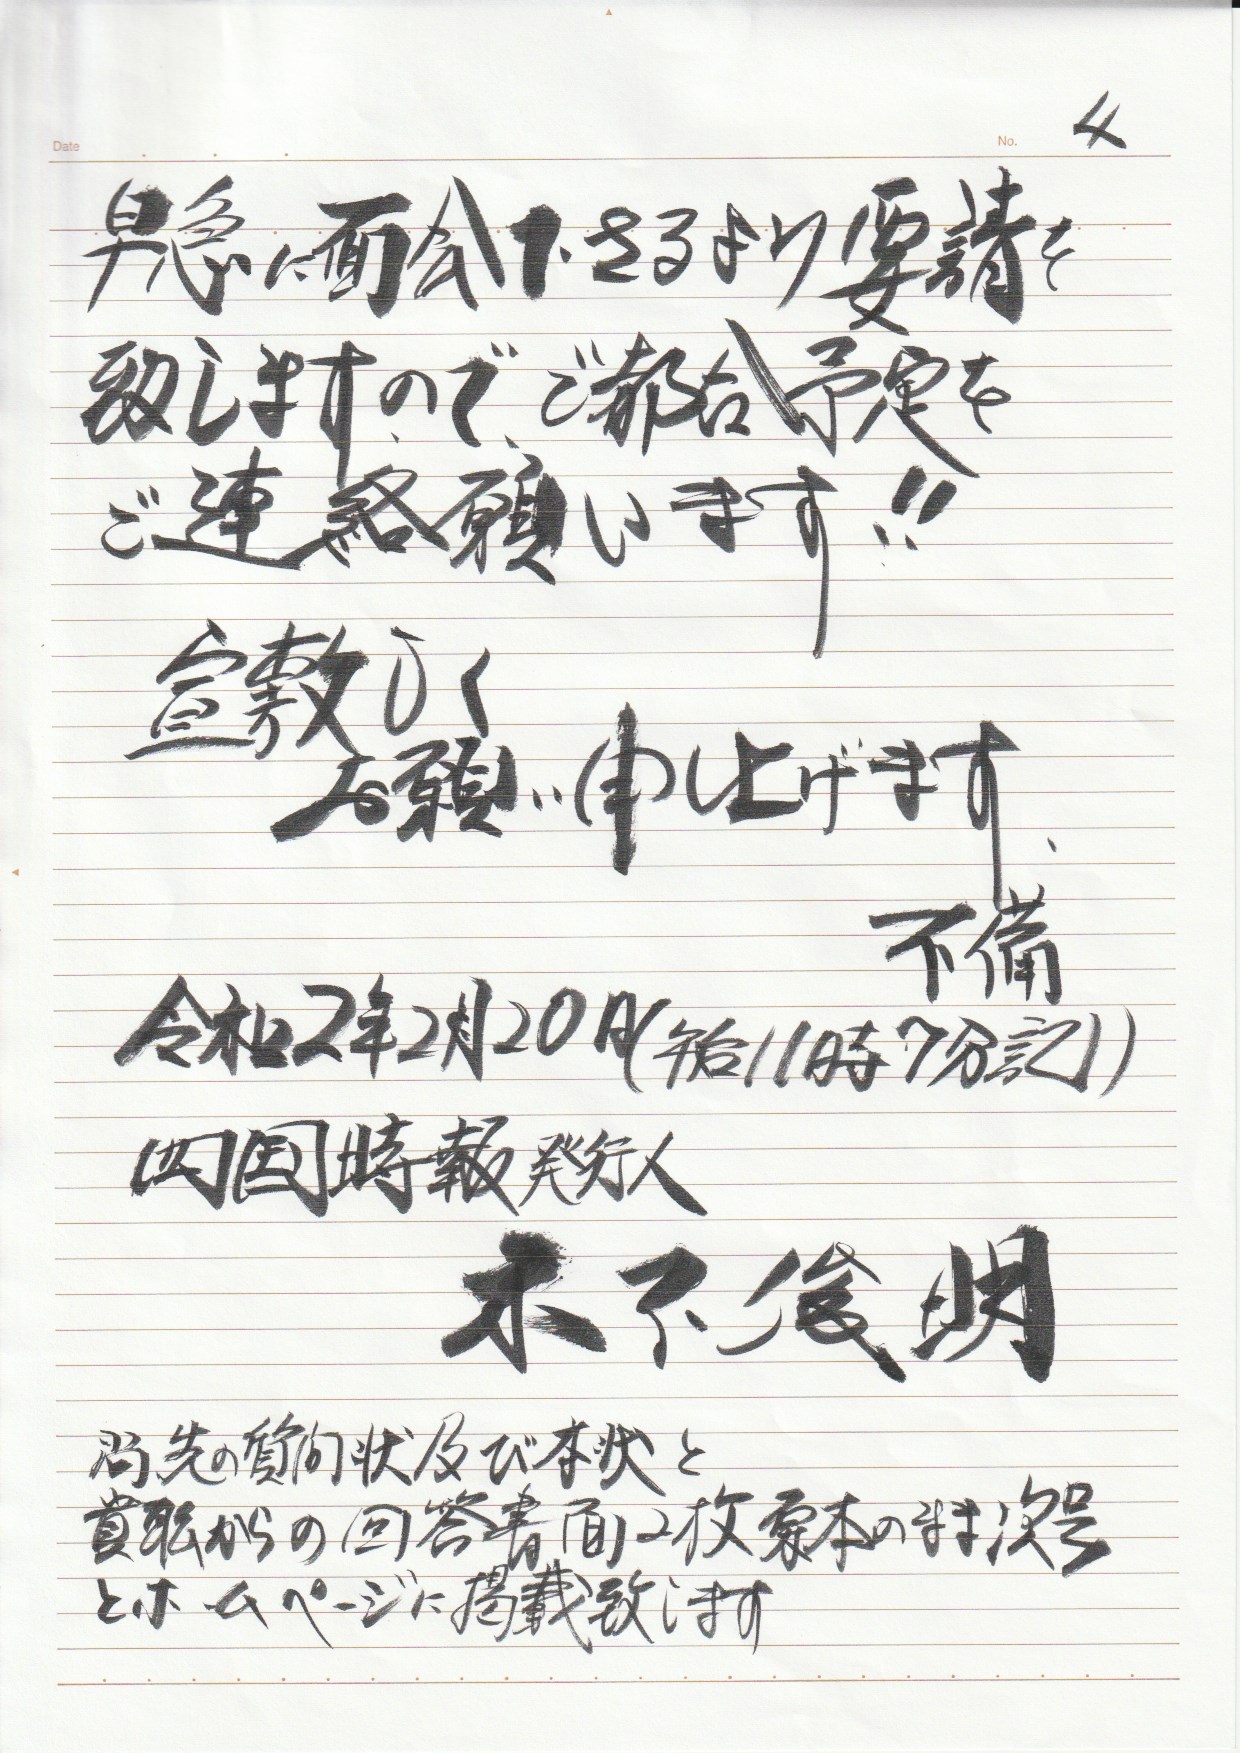 Date
No. 4
早急に面会下さるよう要請を
致しますので、ご都合予定を
ご連絡願います!!
宜敷しく
お願い申し上げます、
不備
令和2年2月20日(午前11時7分記)
四国時報発行人
木下俊明
尚先の質問状及び本状と
貴職からの回答書面2枚原本のまま次号
とホームページに掲載致します